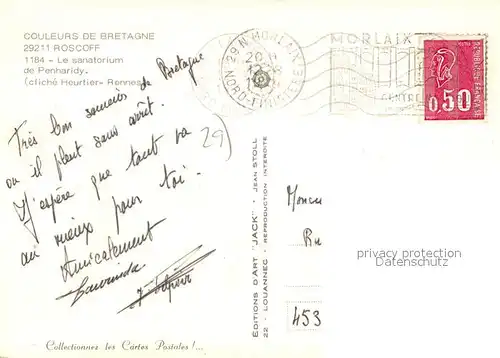 COULEURS DE BRETAGNE
29211 ROSCOFF
1184 - Le sanatorium
de Penharidy.
(cliché Heurtier- Rennes)
29 N MORLAIX
NORD-FINISTERE
MORLAIX
CENTRE
REPUBLIQUE FRANCAISE
0,50
Très bon souvenir de Bretagne
ou il pleut sans arrêt.
J'espère que tout va
au mieux pour toi.
Amicalement
29)
EDITIONS D'ART "JACK" - JEAN STOLL
22 - LOUANNEC - REPRODUCTION INTERDITE
privacy protection
Datenschutz
453
Collectionnez les Cartes Postales !...